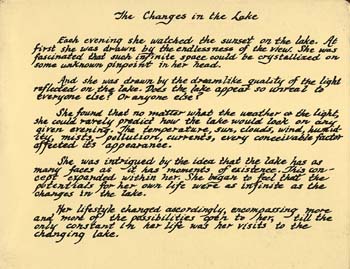 The Changes in the Lake
Each evening she watched the sunset on the lake. At
first she was drawn by the endlessness of the view. She was
fascinated that such infinite space could be crystallized on
some unknown pinpoint in her head.
And she was drawn by the dreamlike quality of the light
reflected on the lake. Does the lake appear so unreal to
everyone else? Or anyone else?
She found that no matter what the weather or the light,
she could rarely predict how the lake would look on any
given evening. The temperature, sun, clouds, wind, humid-
ity, mists, pollution, currents, every conceivable factor
affected its appearance.
She was intrigued by the idea that the lake has as
many faces as it has moments of existence. This con-
cept expanded within her. She began to feel that the
potentials for her own life were as infinite as the
changes in the lake.
Her lifestyle changed accordingly, encompassing more
and more of the possibilities open to her, till the
only constant in her life was her visits to the
changing lake.